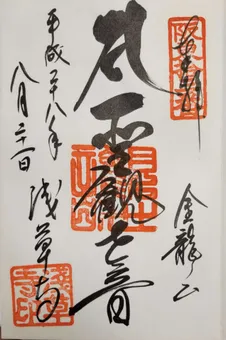 奉拝
金龍山
聖観世音
浅草寺
平成二十八年
八月二十一日